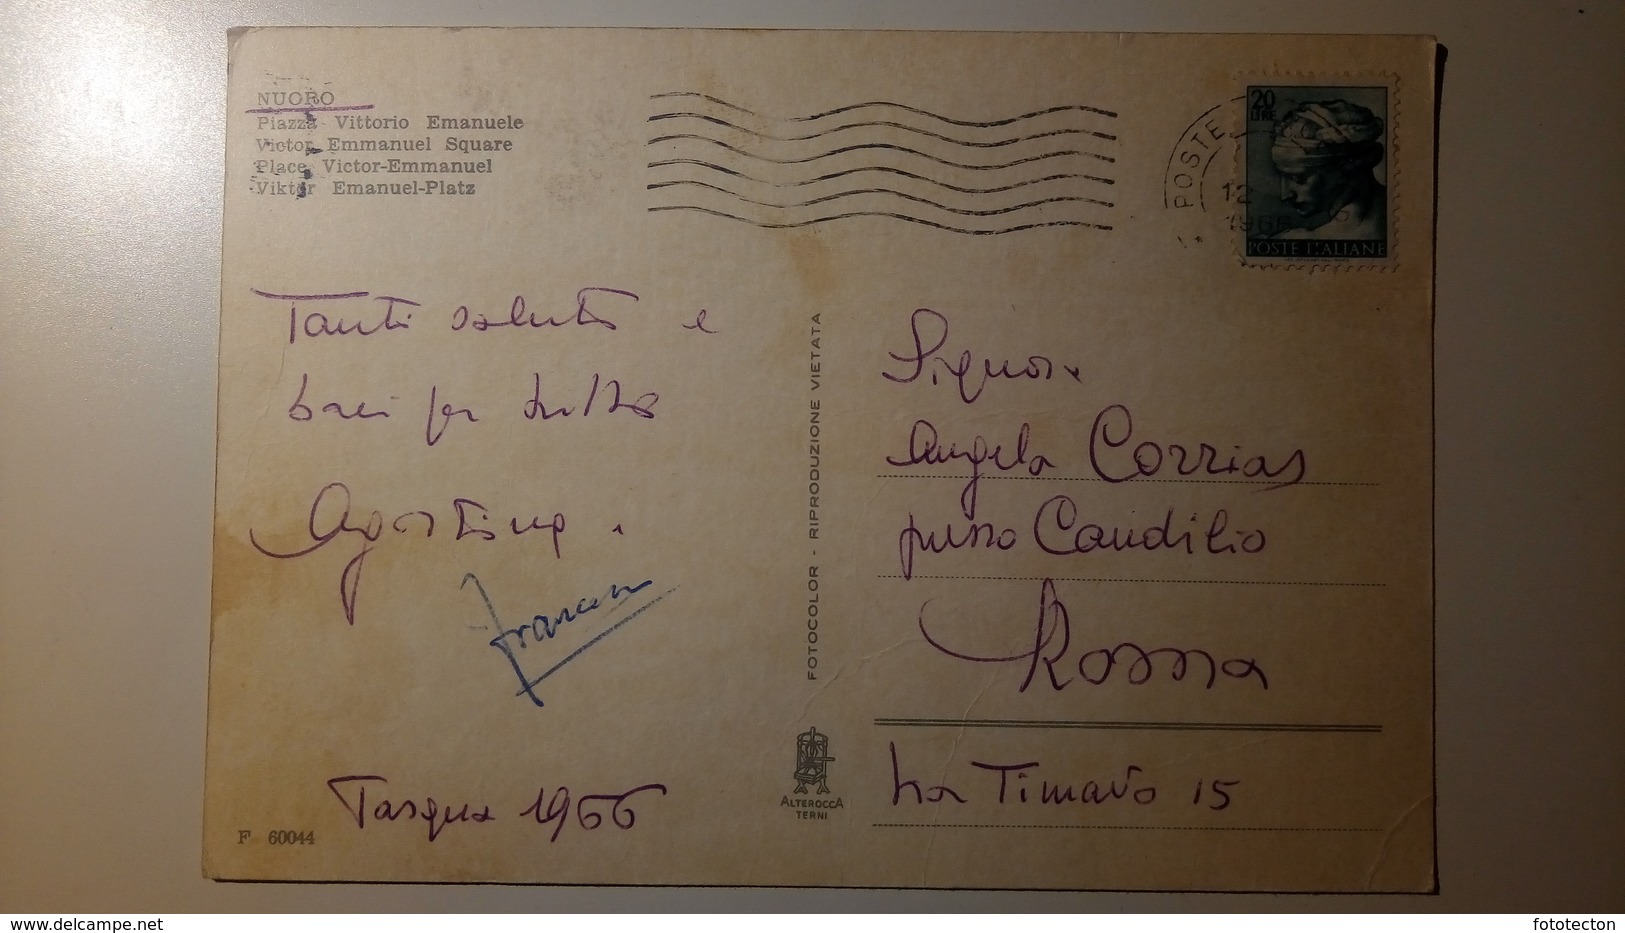 NUORO
Piazza Vittorio Emanuele
Victor Emmanuel Square
Place Victor-Emmanuel
Viktor Emanuel-Platz
POSTE
12
1966
20
LIRE
POSTE ITALIANE
Tanti saluti e
baci per tutti
Agostino.
Pasqua 1966
F 60044
FOTOCOLOR - RIPRODUZIONE VIETATA
ALTEROCCA
TERNI
Signora
Angela Corrias
presso Candilio
Roma
Via Timavo 15
fototecton